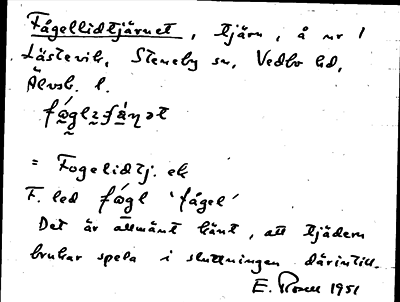 Fågellidtjärnet, tjärn, å nr 1
Lästevik, Steneby sn, Vedbo hd,
Älvsb. l.
= Fogelidtj. ek
F. led fǿgl 'fågel'
Det är allmänt känt, att tjädern
brukar spela i sluttningen därintill.
E. Rosell 1951